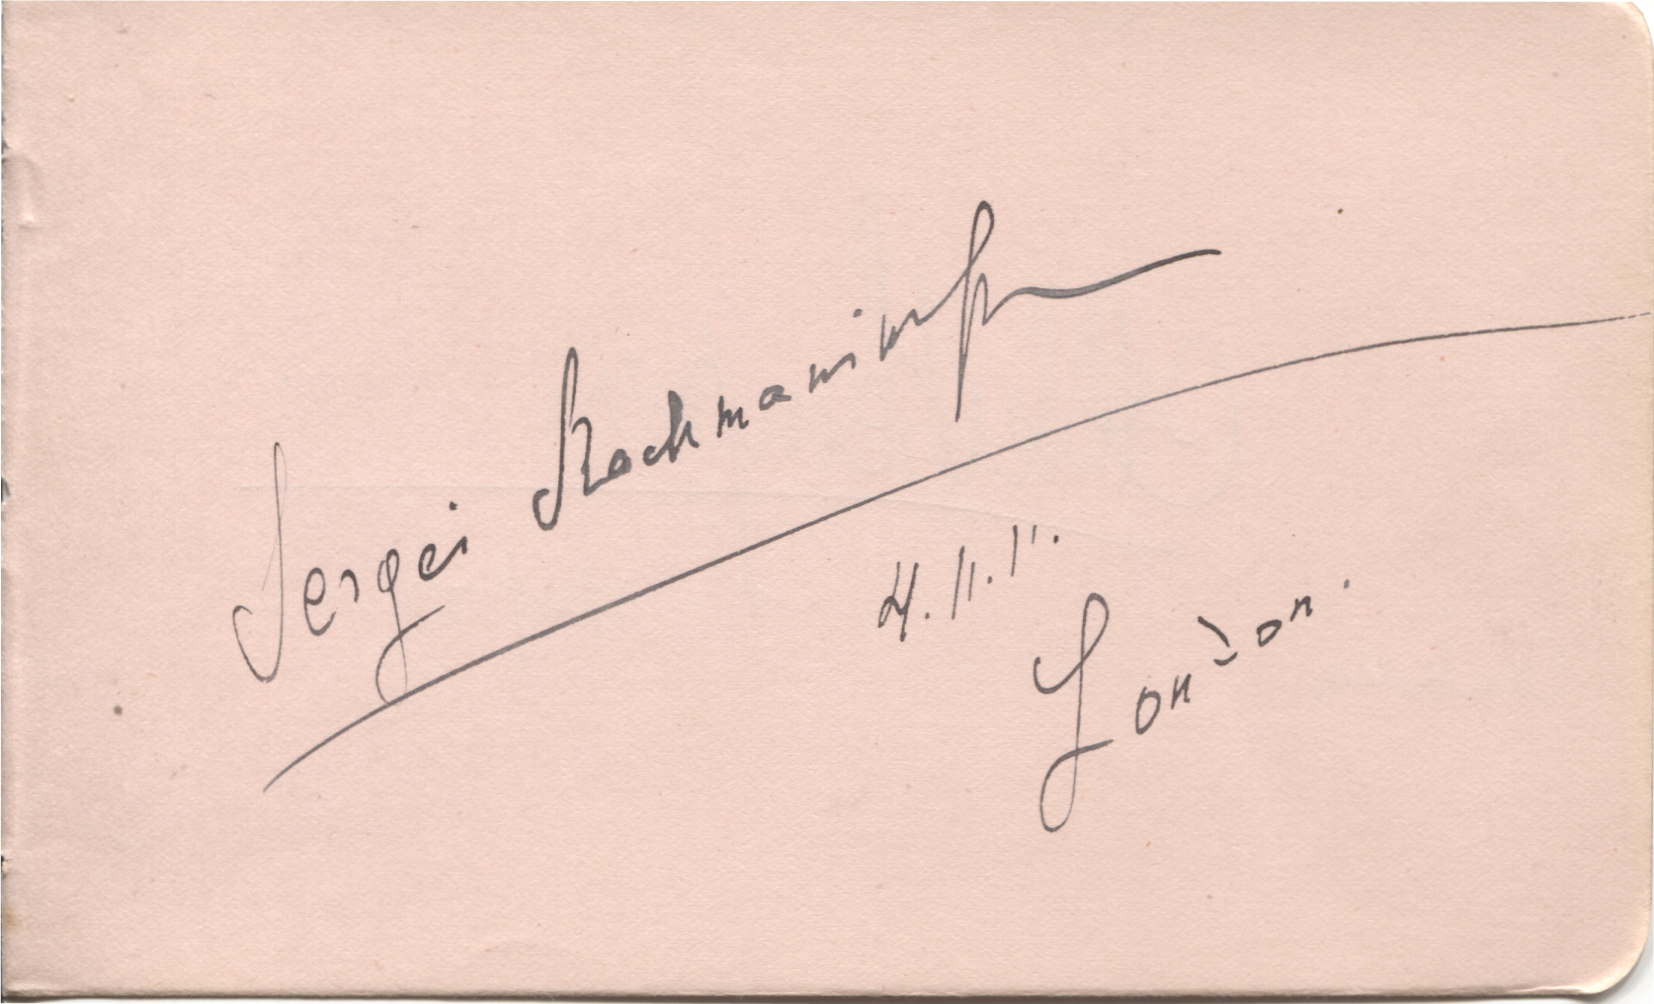 Sergei Rachmaninoff
4. II. 11.
London.